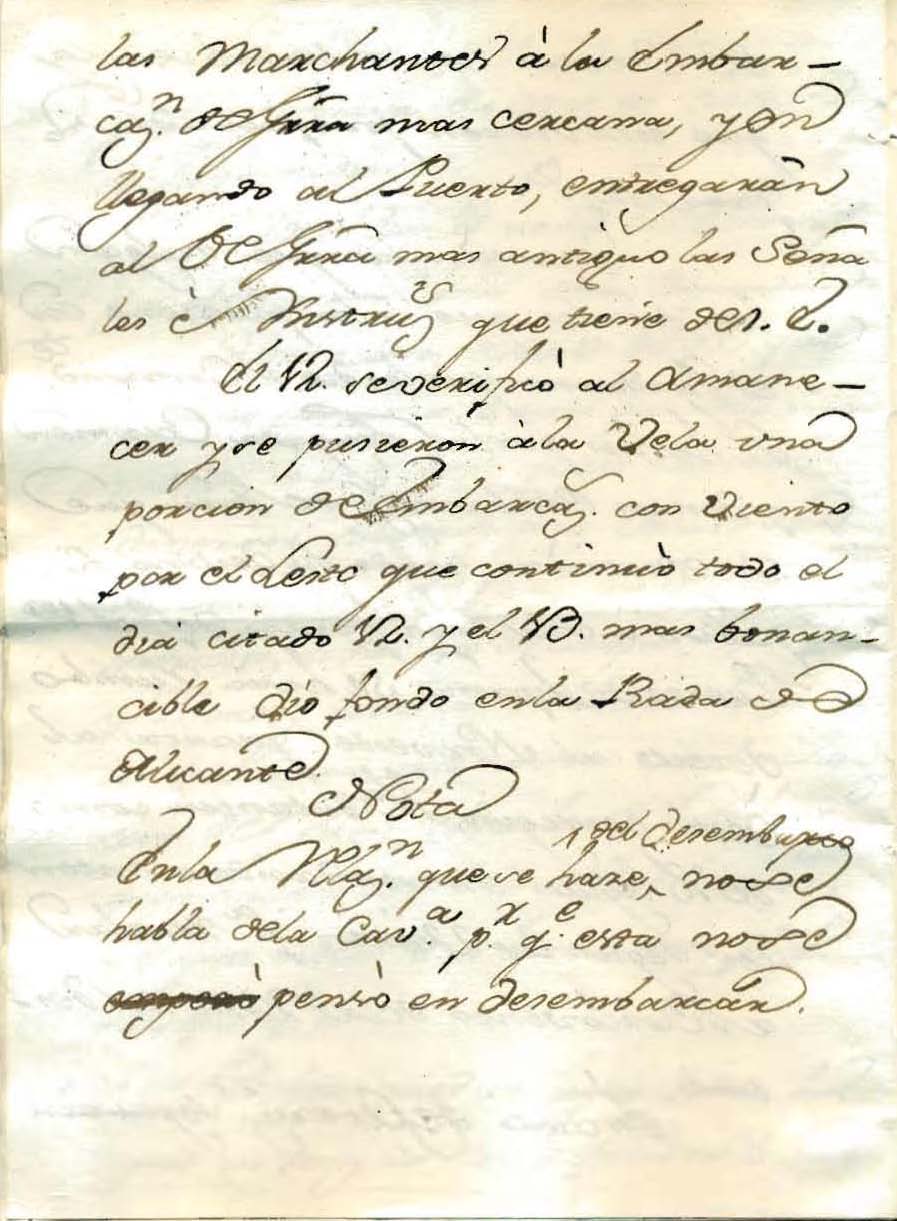 las Marchantes à la Embar-
caz.ⁿ de Grra mas cercana, y en
llegando al Puerto, entregarán
al de Grra mas antiguo las Seña
les è Instruz que tiene de S. E.
El 12. se verificò al Amane-
cer y se pusieron à la Vela vna
porcion de Embarcaz. con Viento
por el Leste que continuò todo el
dia citado 12. y el 13. mas bonan-
cible dio fondo en la Rada de
Alicante.
Nota
del desembarco
En la Rlaz.ⁿ que se haze, no se
habla de la Cav.ª p.r q.e esta no se
pensò en desembarcar.